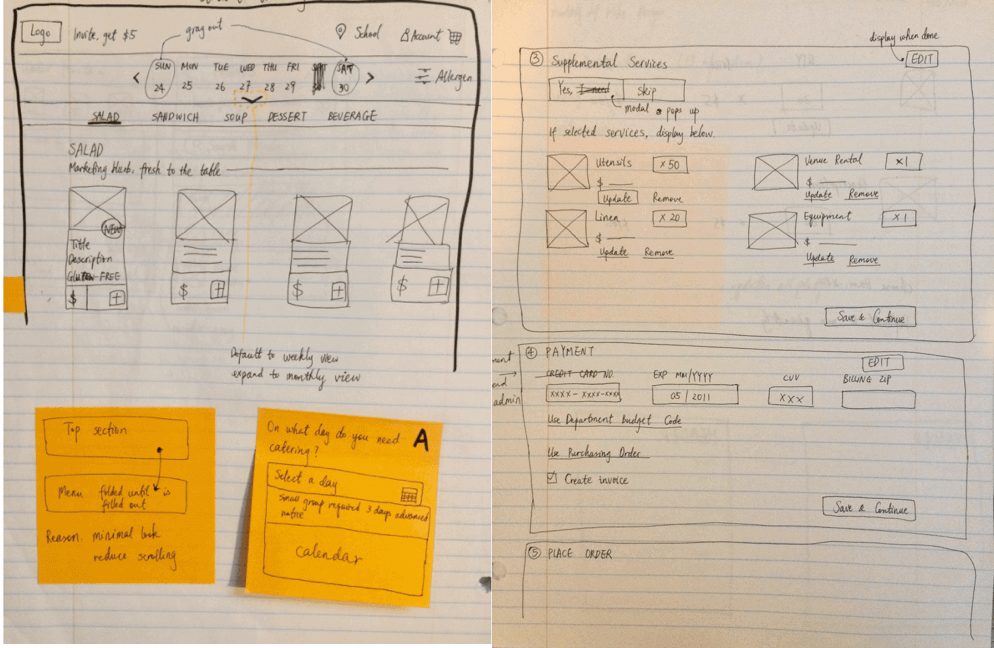 gray out
Logo
Invite, get $5
School
Account
SUN MON TUE WED THU FRI SAT
24 25 26 27 28 29 30
Allergen
SALAD SANDWICH SOUP DESSERT BEVERAGE
SALAD
Marketing blurb, fresh to the table
NEW
Title
Description
Gluten FREE
$ +
$ +
$ +
$ +
Default to weekly view
expand to monthly view
Top section
Menu folded until is
filled out
Reason: minimal look
reduce scrolling
A
On what day do you need
catering?
Select a day
small group required 3 days advanced
notice
calendar
display when done
③ Supplemental Services
EDIT
Yes, I need Skip
modal pops up
If selected services, display below.
Utensils x50
$
Update Remove
Linen x 20
$
Update Remove
Venue Rental x1
$
Update Remove
Equipment x 1
$
Update Remove
Save & Continue
④ PAYMENT
EDIT
admin
CREDIT CARD NO. EXP MM/YYYY CVV BILLING ZIP
xxxx - xxxx-xxxx 05 / 2011 xxx
Use Department Budget Code
Use Purchasing Order
Create invoice
Save & Continue
⑤ PLACE ORDER